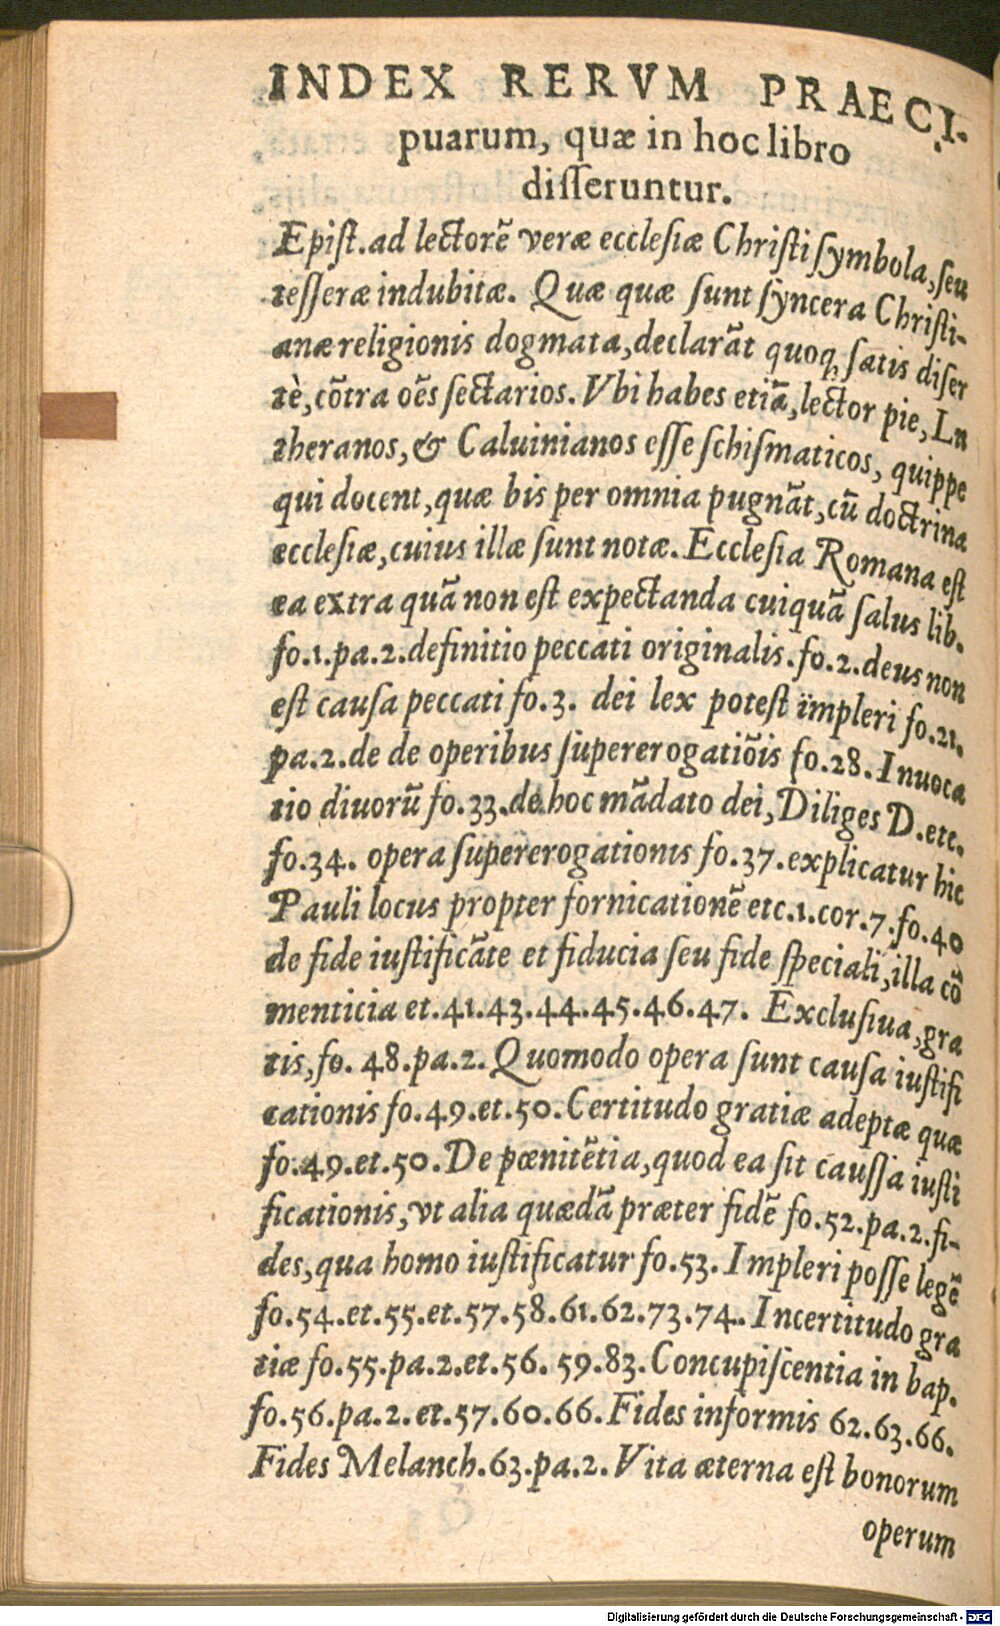 INDEX RERVM PRAECI-
puarum, quæ in hoc libro
disseruntur.
Epist. ad lectorē veræ ecclesiæ Christi symbola, seu
tesseræ indubitæ. Quæ quæ sunt syncera Christi-
anæ religionis dogmata, declarāt quoq, satis diser
tè, cōtra oēs sectarios. Vbi habes etiā, lector pie, Lu
theranos, & Caluinianos esse schismaticos, quippe
qui docent, quæ bis per omnia pugnāt, cū doctrina
ecclesiæ, cuius illæ sunt notæ. Ecclesia Romana est
ea extra quā non est expectanda cuiquā salus lib.
fo.1.pa.2. definitio peccati originalis. fo.2. deus non
est causa peccati fo.3. dei lex potest impleri fo.21.
pa.2. de de operibus supererogatiōis fo.28. Inuoca
tio diuorū fo.33. de hoc mādato dei, Diliges D. etc.
fo.34. opera supererogationis fo.37. explicatur hic
Pauli locus propter fornicationē etc.1.cor.7.fo.40
de fide iustificāte et fiducia seu fide speciali, illa cō
menticia et.41.43.44.45.46.47. Exclusiua, gra
tis, fo. 48.pa.2. Quomodo opera sunt causa iustifi
cationis fo.49.et.50. Certitudo gratiæ adeptæ quæ
fo.49.et.50. De pœnitētia, quod ea sit caussa iusti
ficationis, vt alia quædā præter fidē fo.52.pa.2. fi-
des, qua homo iustificatur fo.53. Impleri posse legē
fo.54.et.55.et.57.58.61.62.73.74. Incertitudo gra
tiæ fo.55.pa.2.et.56. 59.83. Concupiscentia in bap.
fo.56.pa.2.et.57.60.66. Fides informis 62.63.66.
Fides Melanch.63.pa.2. Vita æterna est bonorum
operum
Digitalisierung gefördert durch die Deutsche Forschungsgemeinschaft - DFG